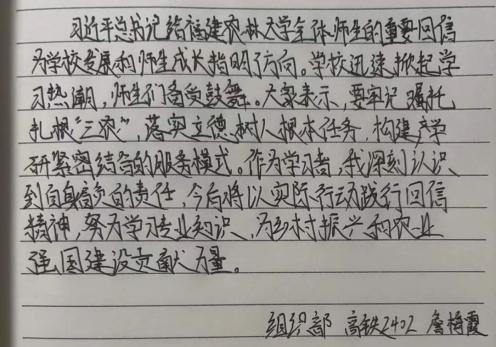 习近平总书记给福建农林大学全体师生的重要回信
为学校发展和师生成长指明了方向。学校迅速掀起学
习热潮,师生们备受鼓舞。大家表示,要牢记嘱托
扎根“三农”,落实立德树人根本任务,构建产学
研紧密结合的服务模式。作为学习者,我深刻认识
到自身肩负的责任,今后将以实际行动践行回信
精神,努力学习专业知识,为乡村振兴和农业
强国建设贡献力量。
组织部 高铁2402 詹梅霞